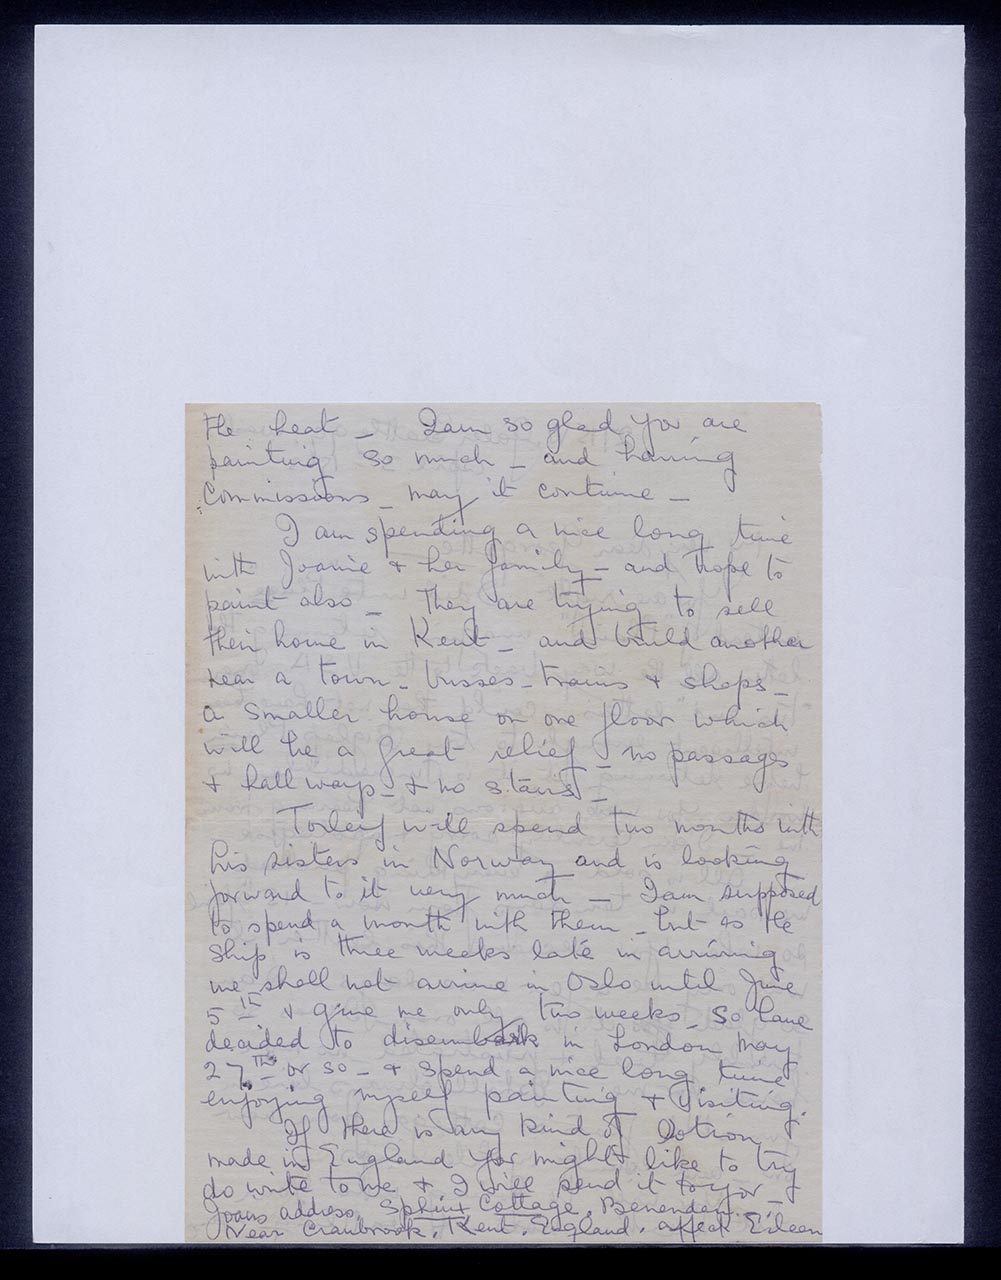 the heat _ I am so glad you are
painting so much _ and having
commissions _ may it continue _
I am spending a nice long time
with Joanie + her family _ and hope to
paint also _ They are trying to sell
their home in Kent _ and build another
near a town _ busses _ trains + shops _
a smaller house on one floor which
will be a great relief _ no passages
+ hall ways _ + no stairs _
Torleif will spend two months with
his sisters in Norway and is looking
forward to it very much _ I am supposed
to spend a month with them _ but as the
ship is three weeks late in arriving
we shall not arrive in Oslo until June
5th + give me only two weeks _ so have
decided to disembark in London May
27th or so _ + spend a nice long time
enjoying myself painting + visiting.
If there is any kind of lotion
made in England you might like to try
do write to me + I will send it to you _
Joans address, Cottage, Benenden.
Near Cranbrook. Kent. England. affect Eileen